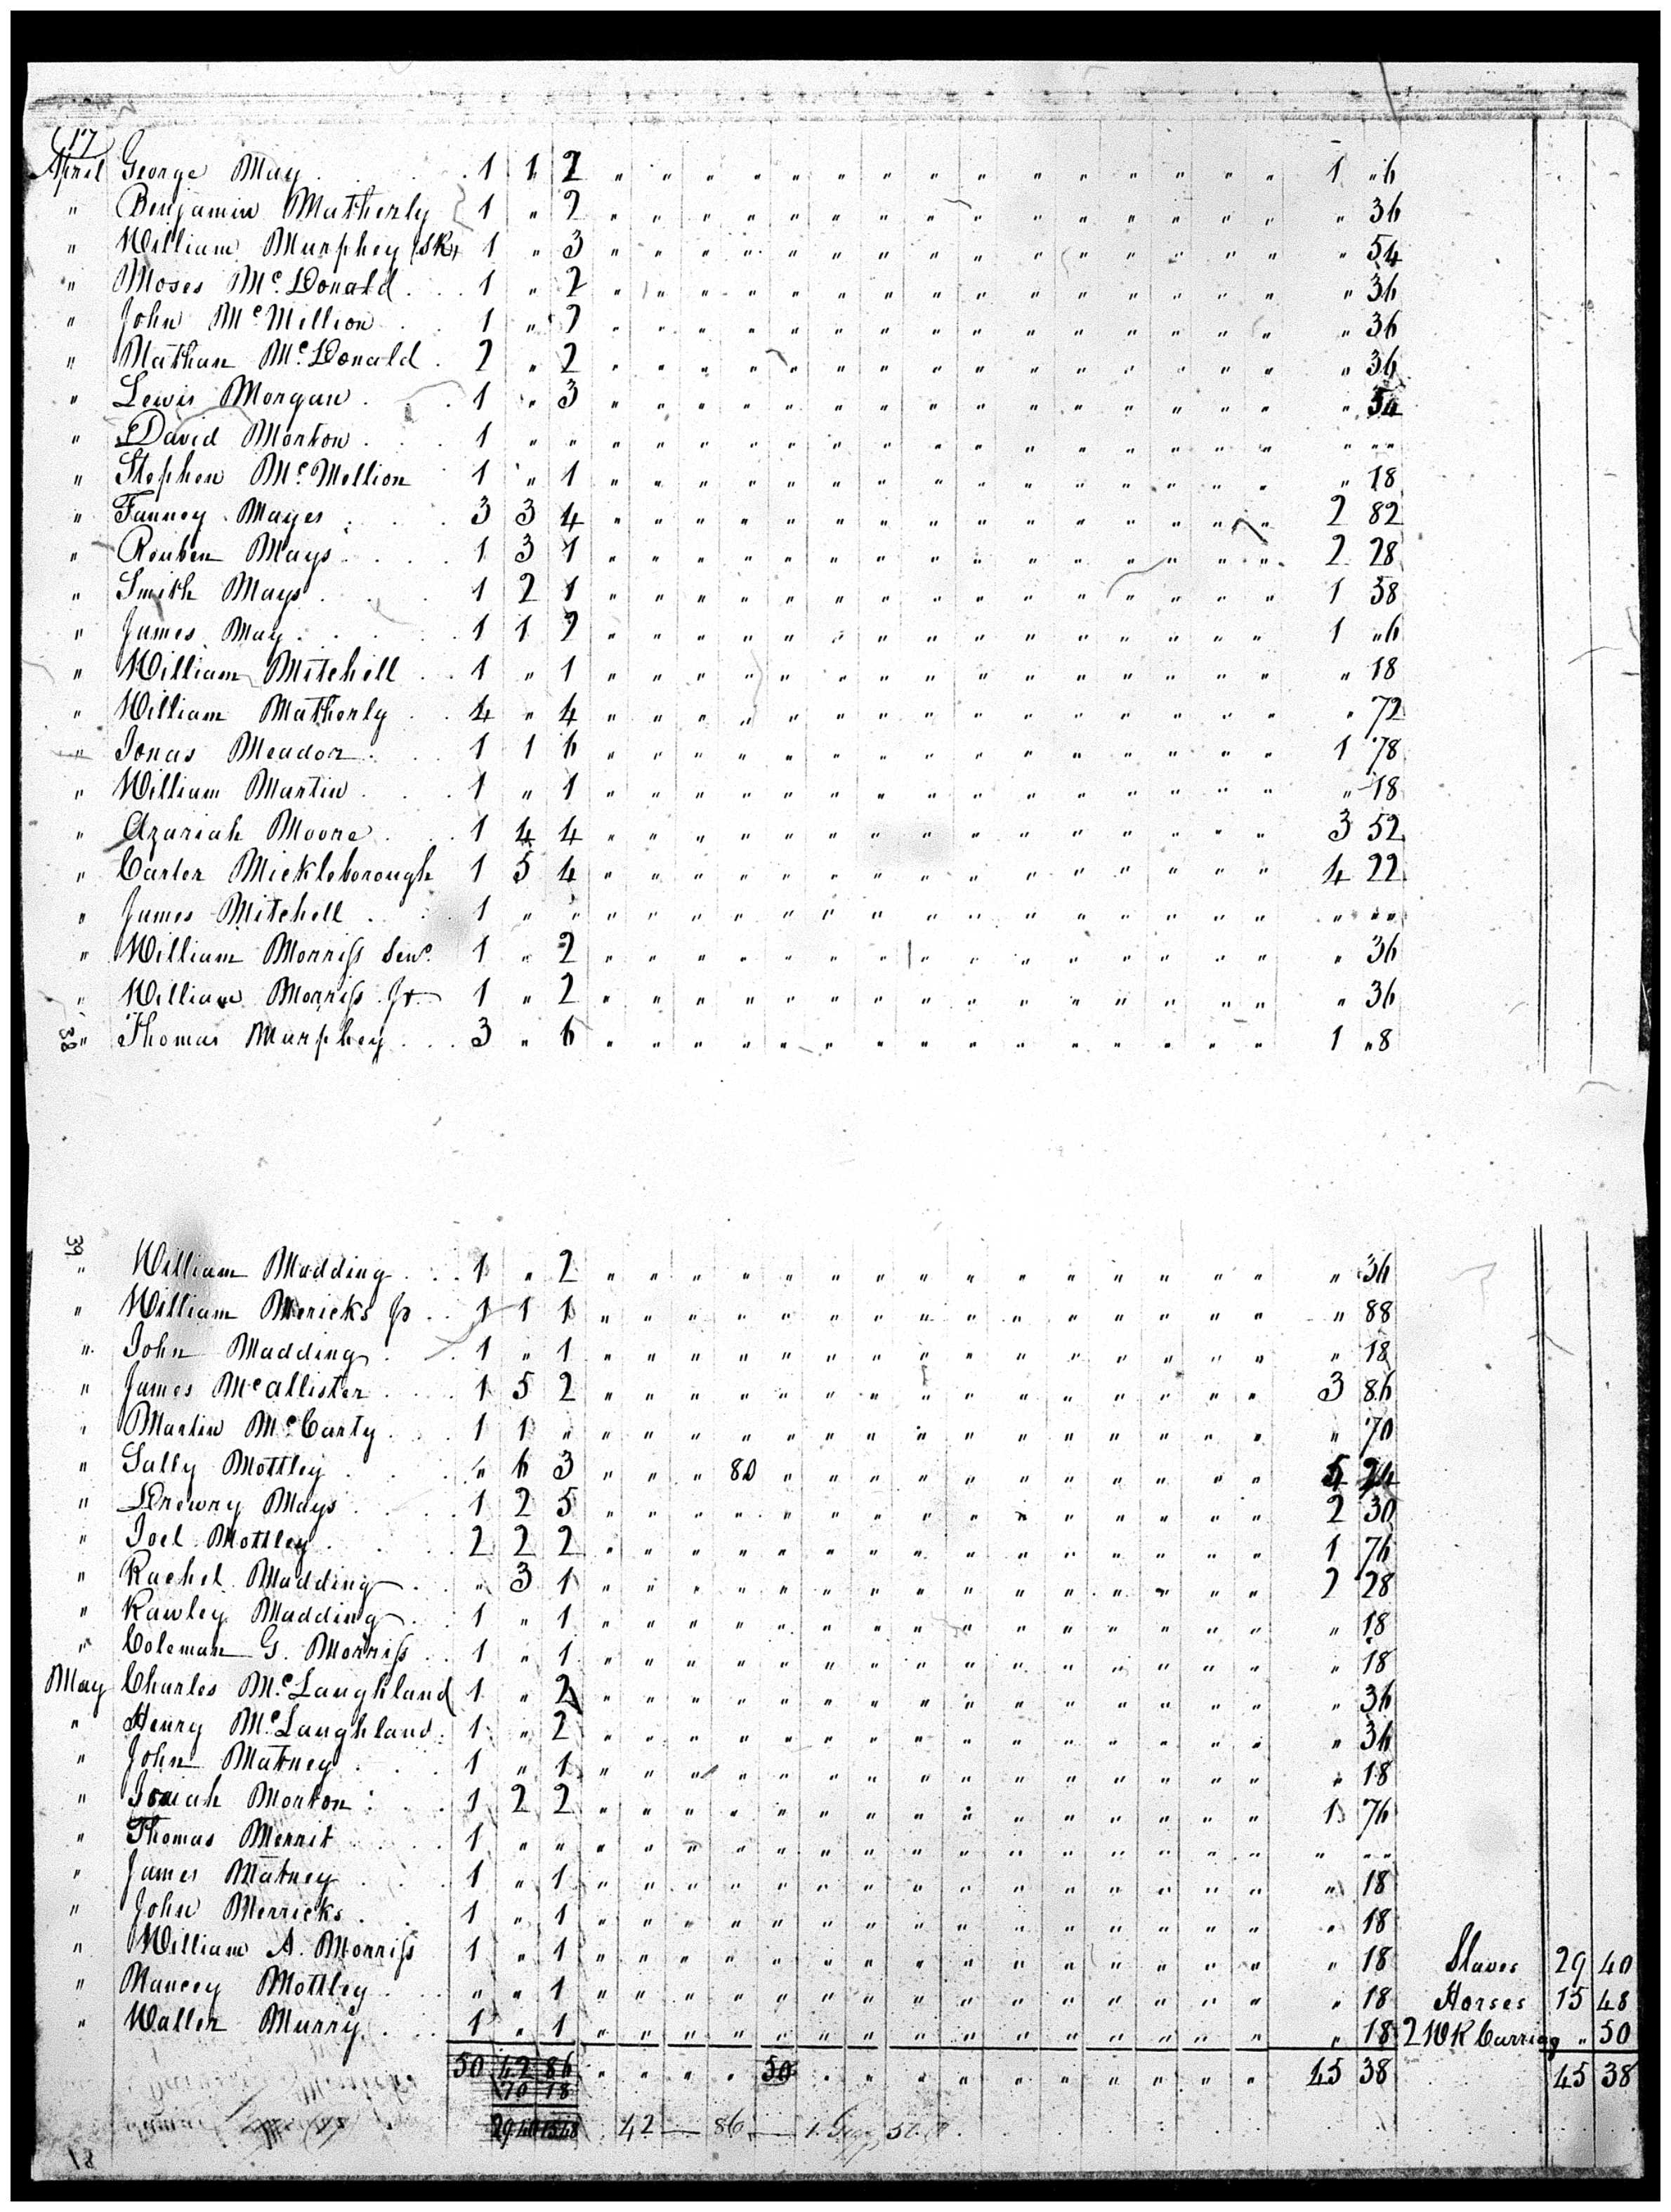 17
April George May 1 1 2 1 "6
" Benjamin Matherly 1 " 2 " 36
" William Murphey (SK) 1 " 3 " 54
" Moses Mc.Donald 1 " 2 " 36
" John McMillion 1 " 2 " 36
" Nathan Mc.Donald 2 " 2 " 36
" Lewis Morgan 1 " 3 " 54
" David Morton 1 " " " " "
" Stephen Mc.Mellion 1 " 1 " 18
" Fanney Mayes 3 3 4 2 82
" Reuben Mays 1 3 1 2 28
" Smith Mays 1 2 1 1 58
" James May 1 1 2 1 "6
" William Mitchell 1 " 1 " 18
" William Matherly 4 " 4 " 72
" Jonas Meador 1 1 6 1 78
" William Martin 1 " 1 " 18
" Azariah Moore 1 4 4 3 52
" Carter Mickleborough 1 5 4 4 22
" James Mitchell 1 " " " " "
" William Morriss Senr. 1 " 2 " 36
" William Morriss Jr 1 " 2 " 36
38 " Thomas Murphey 3 " 6 1 "8
39
" William Madding 1 " 2 " 36
" William Mericks Jr 1 1 1 " 88
" John Madding 1 " 1 " 18
" James Mcallister 1 5 2 3 86
" Martin Mc.Carty 1 1 " " 70
" Sally Mottley " 6 3 " " " 80 5 24
" Drewry Mays 1 2 5 2 30
" Joel Mottley 2 2 2 1 76
" Rachel Madding " 3 1 2 28
" Rawley Madding 1 " 1 " 18
" Coleman G. Morriss 1 " 1 " 18
May Charles Mc.Laughland 1 " 2 " 36
" Henry Mc.Laughland 1 " 2 " 36
" John Matney 1 " 1 " 18
" Josiah Morton 1 2 2 1 76
" Thomas Merrit 1 " " " " "
" James Matney 1 " 1 " 18
" John Merricks 1 " 1 " 18
" William A. Morriss 1 " 1 " 18 Slaves 29 40
" Nancey Mottley " " 1 " 18 Horses 15 48
" Waller Murry 1 " 1 " 18 2 WR Carriag " 50
50 42 86 50 45 38 45 38
70 18
29 40 15 48 42 — 86 — 1